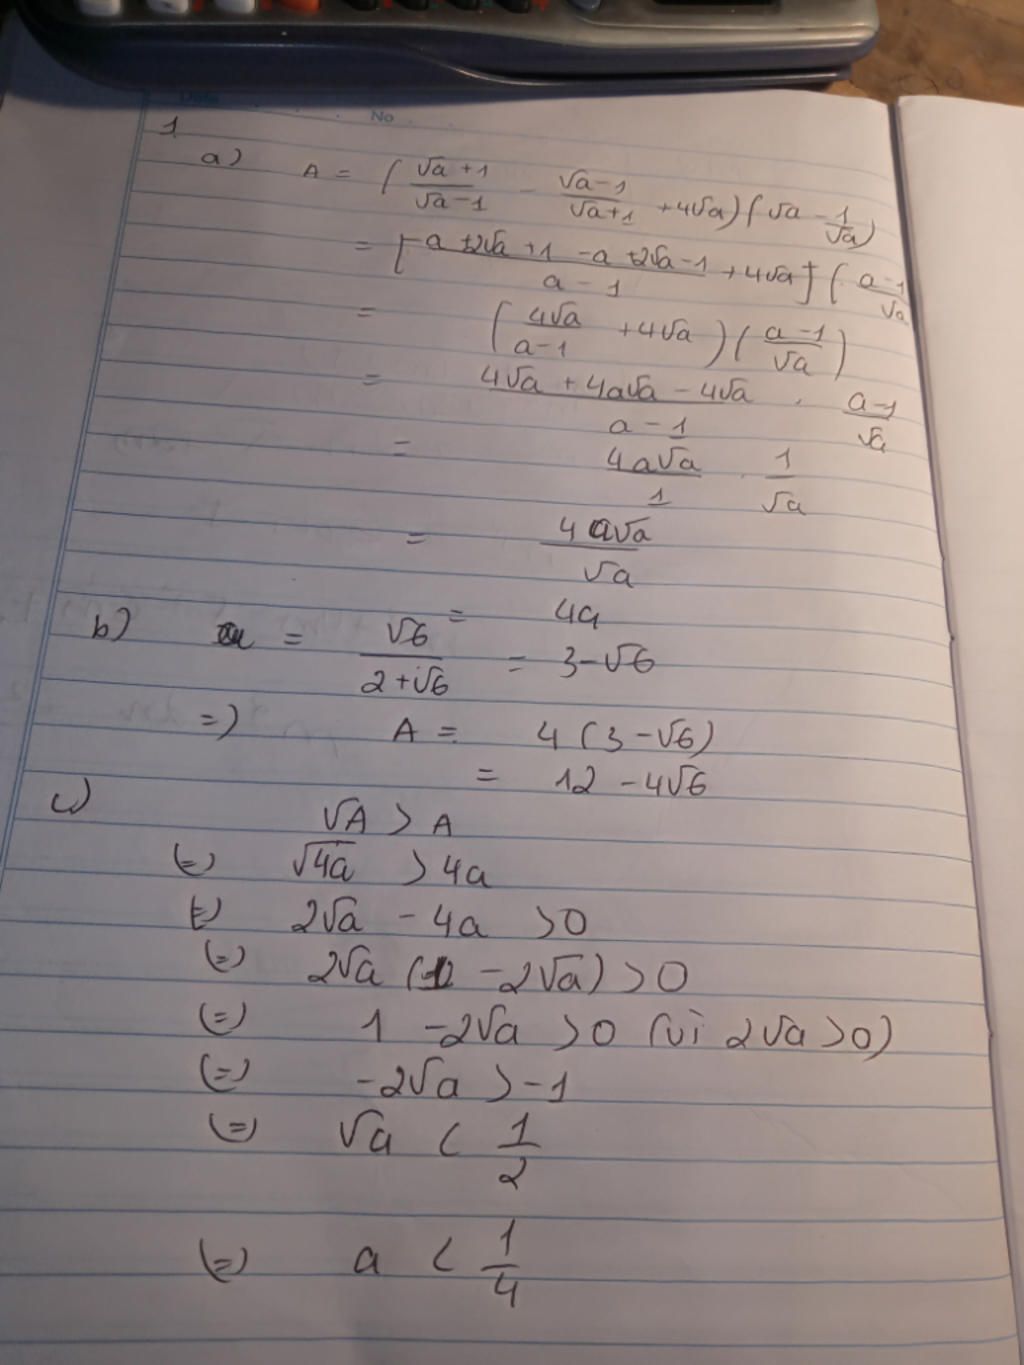 Date No
1
a) A = (√a+1/√a-1 - √a-1/√a+1 + 4√a)(√a - 1/√a)
= [a+2√a+1-a+2√a-1/a-1 + 4√a](a-1/√a
= (4√a/a-1 + 4√a)(a-1/√a)
= 4√a + 4a√a - 4√a/a-1 . a-1/√a
= 4a√a/1 . 1/√a
= 4a√a/√a
= 4a
b) a = √6/2+√6 = 3-√6
=) A = 4(3-√6)
= 12 - 4√6
c) √A > A
(=) √4a > 4a
(=) 2√a - 4a > 0
(=) 2√a (1 - 2√a) > 0
(=) 1 - 2√a > 0 (vì 2√a > 0)
(=) -2√a > -1
(=) √a < 1/2
(=) a < 1/4